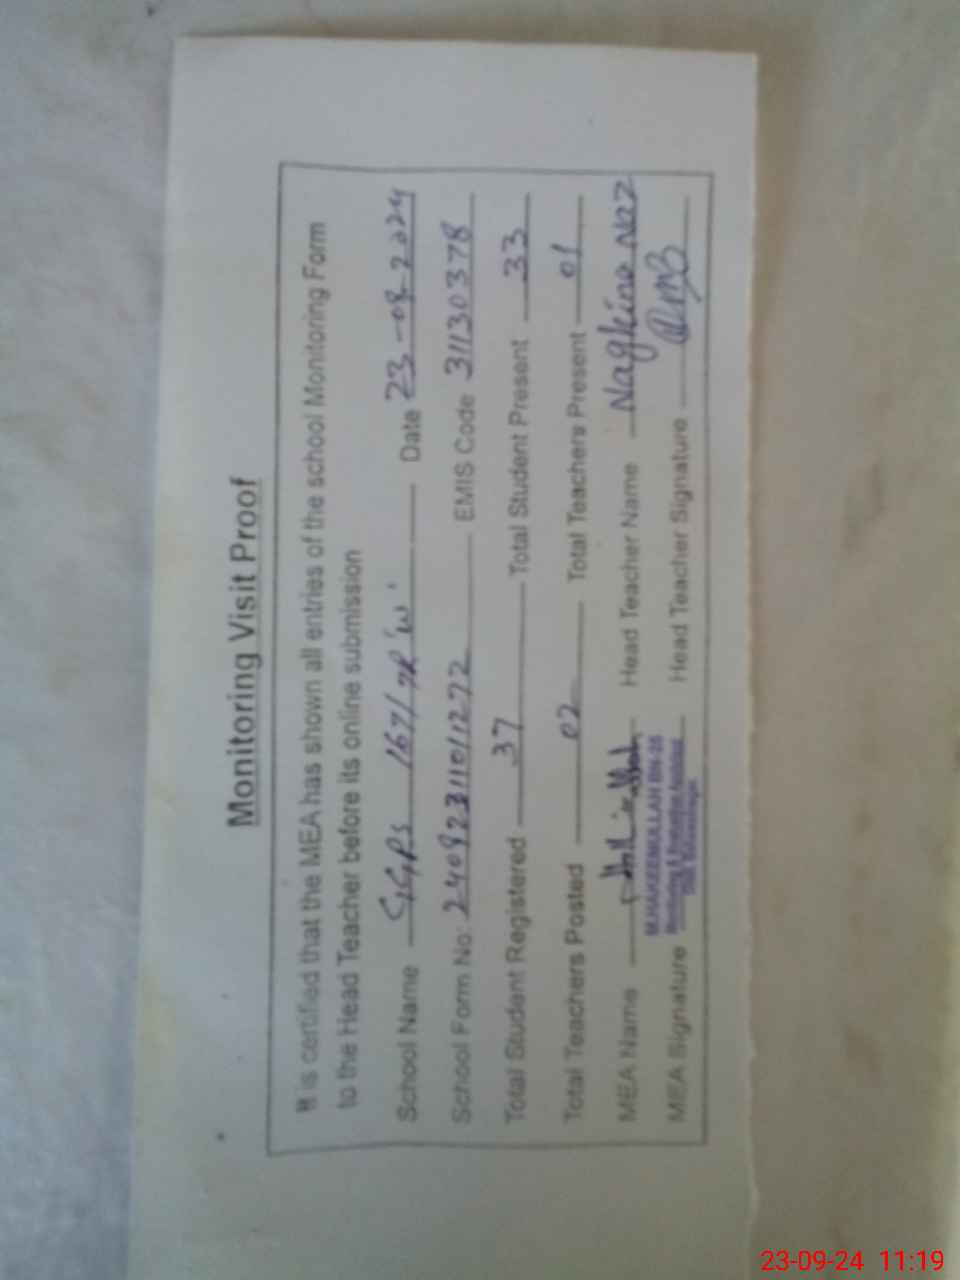 Monitoring Visit Proof
It is certified that the MEA has shown all entries of the school Monitoring Form
to the Head Teacher before its online submission
School Name GGPS 167/7R 'W' Date 23-09-2024
School Form No: 24092311011272 EMIS Code 31130378
Total Student Registered 37 Total Student Present 33
Total Teachers Posted 02 Total Teachers Present 01
MEA Name Head Teacher Name Naghina Naz
M.HAKEEMULLAH
Monitoring &
MEA Signature Head Teacher Signature
23-09-24 11:19